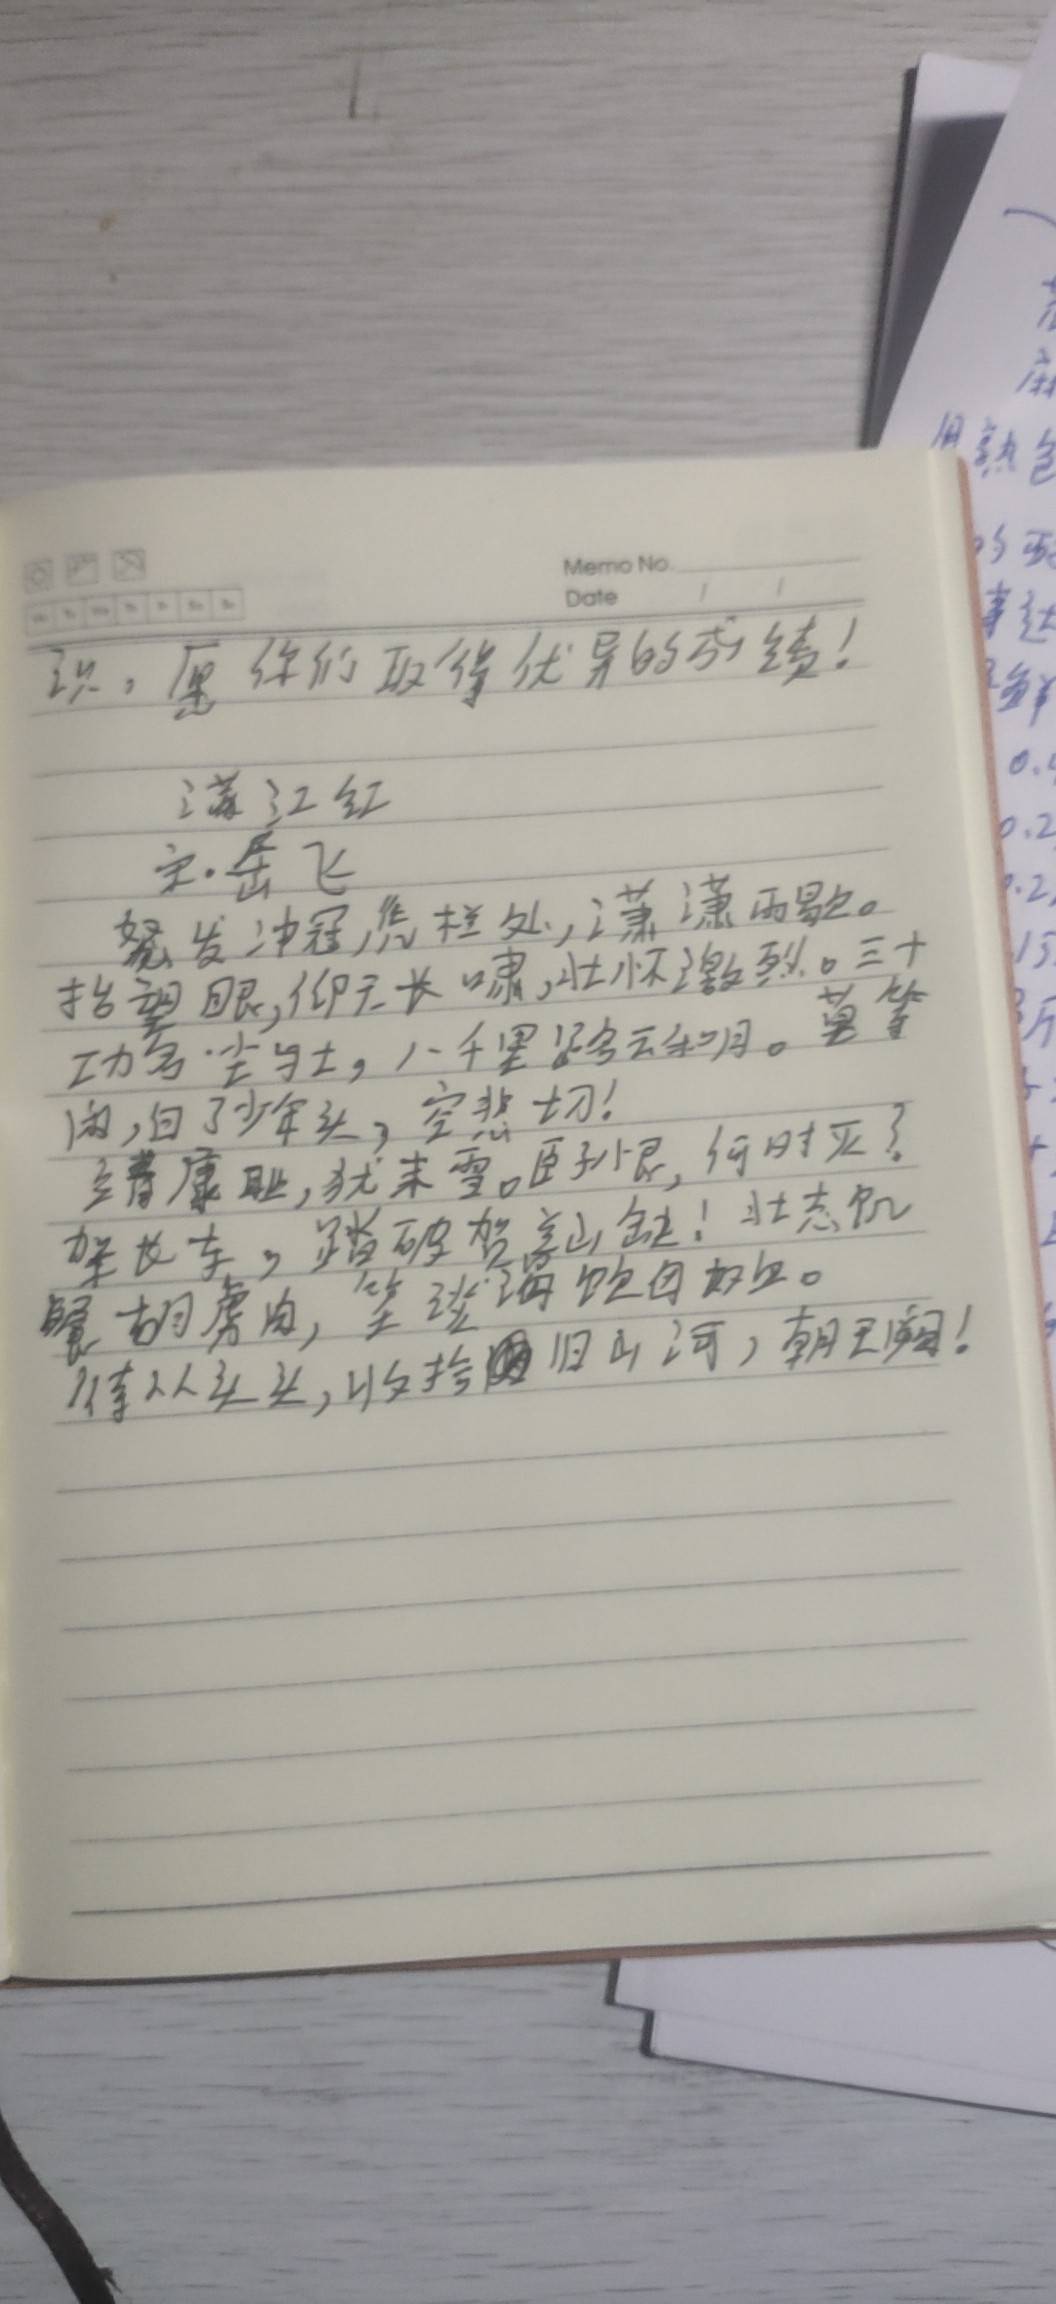 Memo No.
Date / /
识，愿你们取得优异的成绩！
满江红
宋·岳飞
怒发冲冠，凭栏处，潇潇雨歇。
抬望眼，仰天长啸，壮怀激烈。三十
功名尘与土，八千里路云和月。莫等
闲，白了少年头，空悲切！
靖康耻，犹未雪。臣子恨，何时灭？
架长车，踏破贺兰山缺！壮志饥
餐胡虏肉，笑谈渴饮匈奴血。
待从头头，收拾旧山河，朝天阙！
用熟色
的配
0.2
0.2,